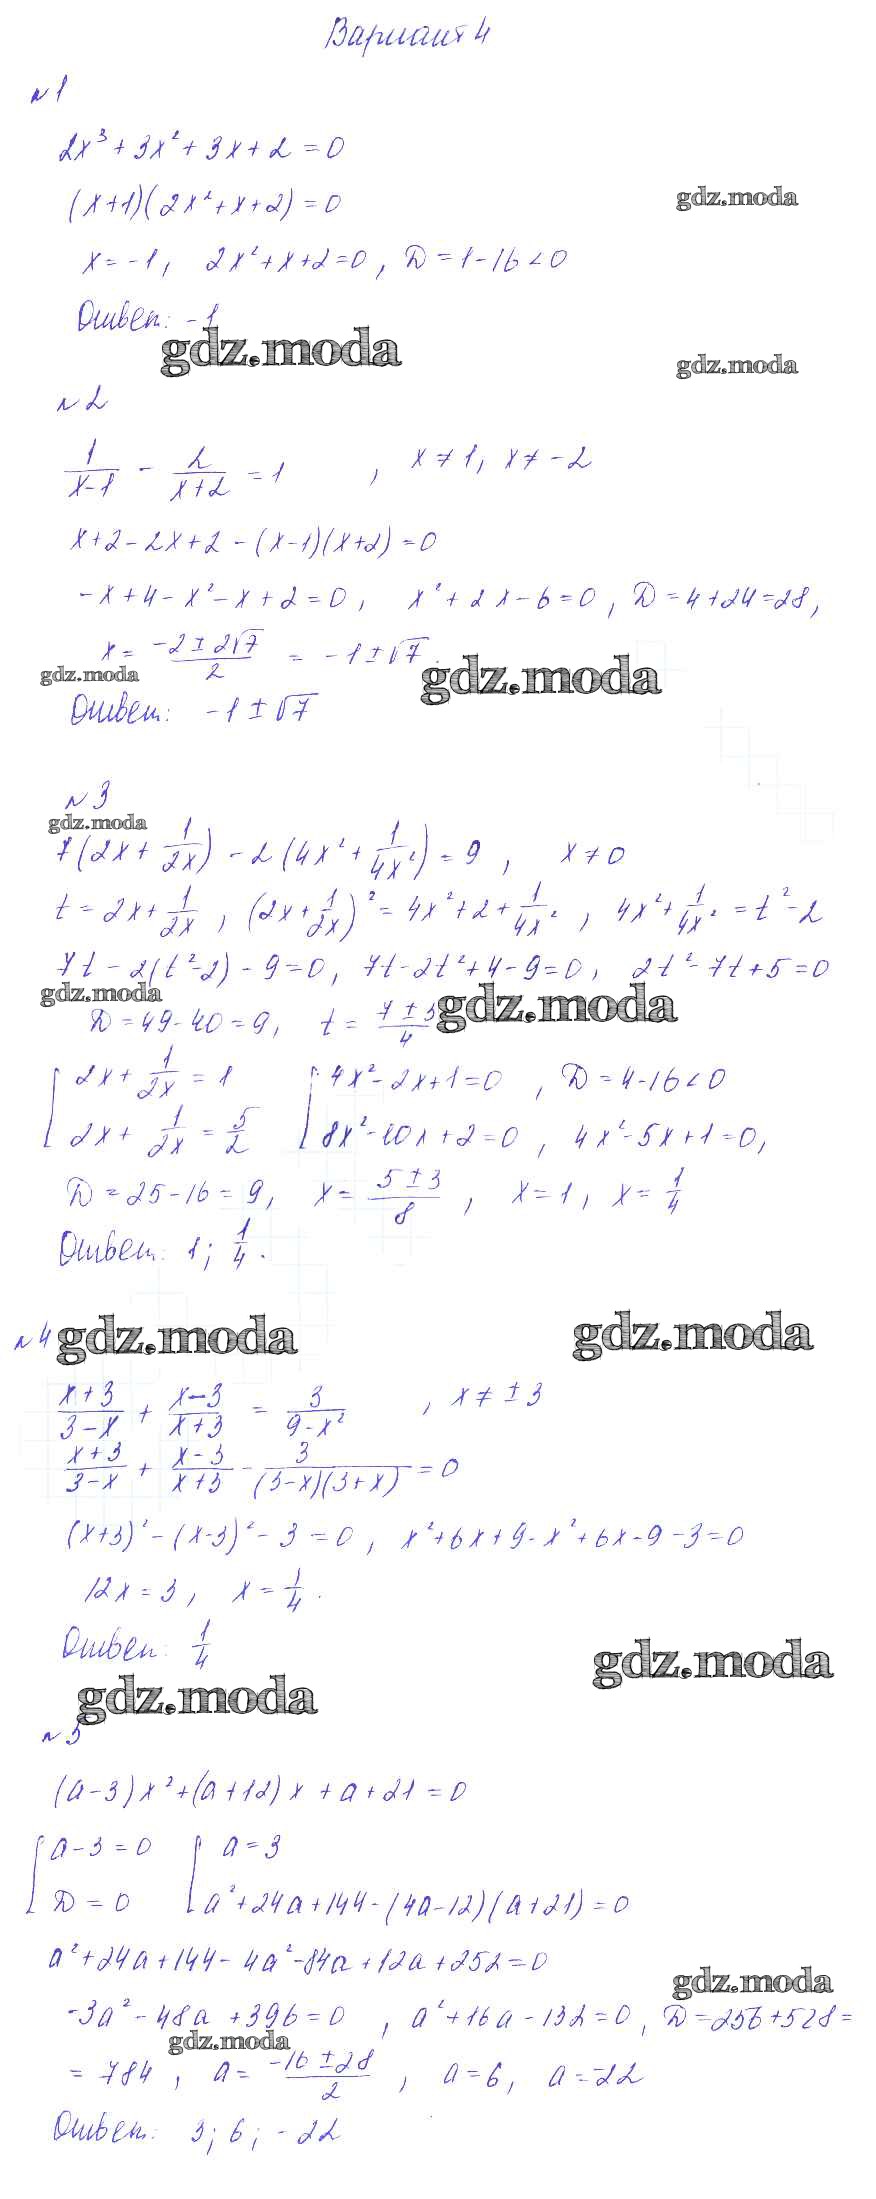 Вариант 4
№1
2x³ + 3x² + 3x + 2 = 0
(x+1)(2x² + x + 2) = 0
gdz.moda
x = -1, 2x² + x + 2 = 0, D = 1 - 16 < 0
Ответ: -1
gdz.moda
gdz.moda
№2
1/(x-1) - 2/(x+2) = 1, x ≠ 1, x ≠ -2
x + 2 - 2x + 2 - (x-1)(x+2) = 0
-x + 4 - x² - x + 2 = 0, x² + 2x - 6 = 0, D = 4 + 24 = 28,
x = (-2 ± 2√7)/2 = -1 ± √7.
gdz.moda
gdz.moda
Ответ: -1 ± √7
№3
gdz.moda
7(2x + 1/(2x)) - 2(4x² + 1/(4x²)) = 9, x ≠ 0
t = 2x + 1/(2x), (2x + 1/(2x))² = 4x² + 2 + 1/(4x²), 4x² + 1/(4x²) = t² - 2
7t - 2(t² - 2) - 9 = 0, 7t - 2t² + 4 - 9 = 0, 2t² - 7t + 5 = 0
gdz.moda
gdz.moda
D = 49 - 40 = 9, t = (7 ± 3)/4
[ 2x + 1/(2x) = 1 [ 4x² - 2x + 1 = 0, D = 4 - 16 < 0
2x + 1/(2x) = 5/2 8x² - 10x + 2 = 0, 4x² - 5x + 1 = 0,
D = 25 - 16 = 9, x = (5 ± 3)/8, x = 1, x = 1/4
Ответ: 1; 1/4.
№4
gdz.moda
gdz.moda
(x+3)/(3-x) + (x-3)/(x+3) = 3/(9-x²), x ≠ ±3
(x+3)/(3-x) + (x-3)/(x+3) - 3/((3-x)(3+x)) = 0
(x+3)² - (x-3)² - 3 = 0, x² + 6x + 9 - x² + 6x - 9 - 3 = 0
12x = 3, x = 1/4.
Ответ: 1/4
gdz.moda
gdz.moda
№5
(a-3)x² + (a+12)x + a + 21 = 0
[ a - 3 = 0 [ a = 3
D = 0 a² + 24a + 144 - (4a-12)(a+21) = 0
a² + 24a + 144 - 4a² - 84a + 12a + 252 = 0
gdz.moda
-3a² - 48a + 396 = 0, a² + 16a - 132 = 0, D = 256 + 528 =
gdz.moda
= 784, a = (-16 ± 28)/2, a = 6, a = -22
Ответ: 3; 6; -22